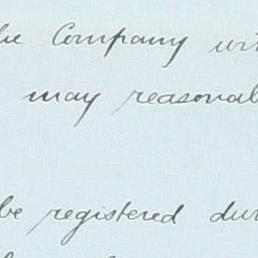 the Company wit
may reasonabl
be registered dur